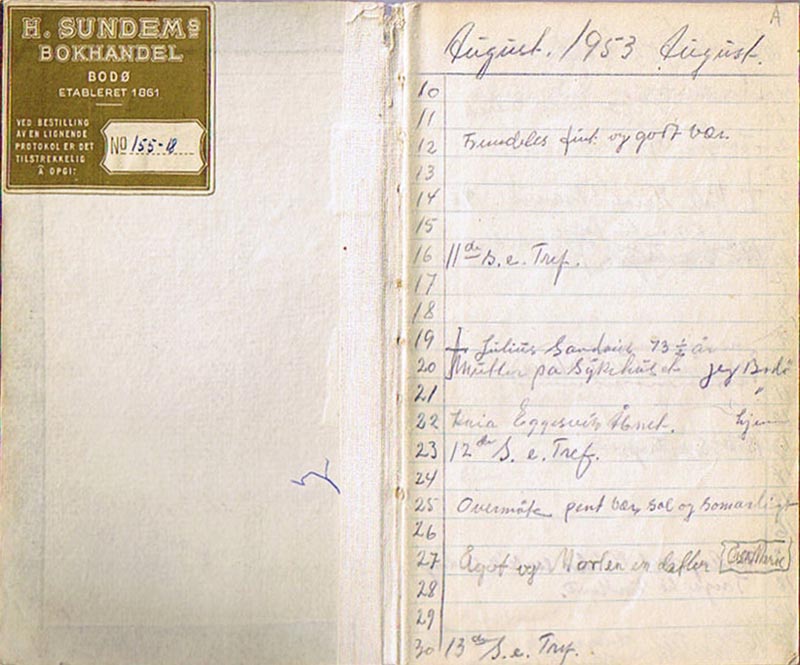 H. SUNDEMS
BOKHANDEL
BODØ
ETABLERET 1861
VED BESTILLING
AV EN LIGNENDE
PROTOKOL ER DET
TILSTREKKELIG
Å OPGI:
No 155-18
A
August. 1953 August.
10
11
12 Fremdeles fint og godt vær.
13
14
15
16 11de S. e. Tref.
17
18
19 Julius 73 1/2 år
20 Mutter på Sykehuset jeg Bodö
21 "
22 Eggesvik Åbnet. hjem
23 12de S. e. Tref.
24
25 Overmåte pent vær, sol og somarligt
26
27 Ågot og Morten en datter
28
29
30 13de S. e. Tref.